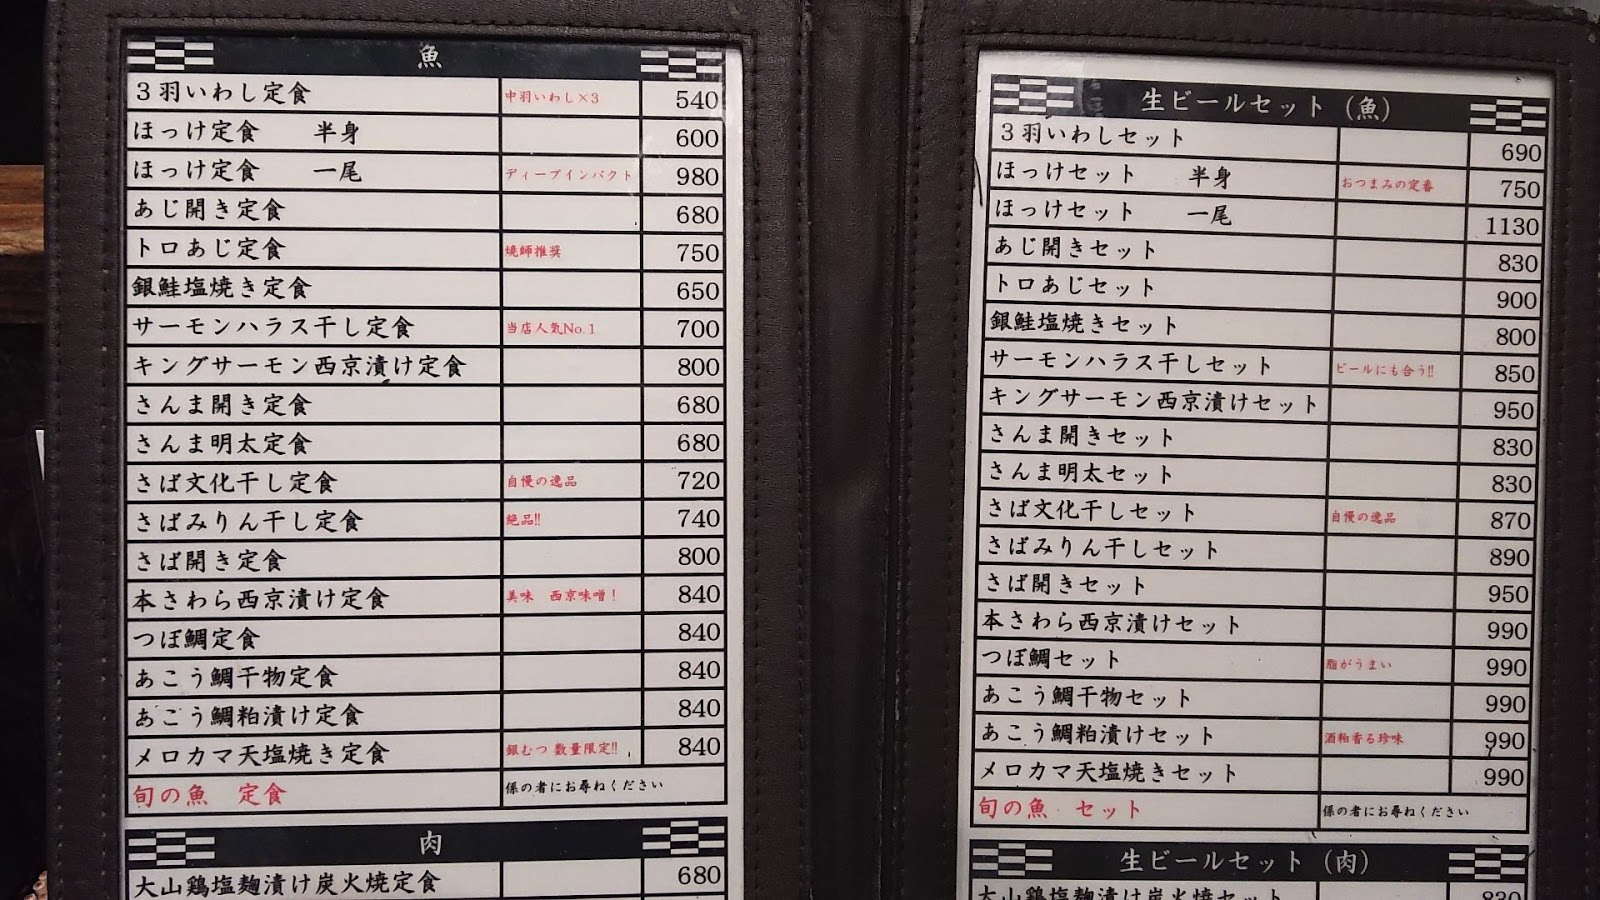 魚
3羽いわし定食 中羽いわし×3 540
ほっけ定食 半身 600
ほっけ定食 一尾 ディープインパクト 980
あじ開き定食 680
トロあじ定食 焼師推奨 750
銀鮭塩焼き定食 650
サーモンハラス干し定食 当店人気No.1 700
キングサーモン西京漬け定食 800
さんま開き定食 680
さんま明太定食 680
さば文化干し定食 自慢の逸品 720
さばみりん干し定食 絶品!! 740
さば開き定食 800
本さわら西京漬け定食 美味 西京味噌! 840
つぼ鯛定食 840
あこう鯛干物定食 840
あこう鯛粕漬け定食 840
メロカマ天塩焼き定食 銀むつ 数量限定!! 840
旬の魚 定食 係の者にお尋ねください
肉
大山鶏塩麹漬け炭火焼定食 680
生ビールセット(魚)
3羽いわしセット 690
ほっけセット 半身 おつまみの定番 750
ほっけセット 一尾 1130
あじ開きセット 830
トロあじセット 900
銀鮭塩焼きセット 800
サーモンハラス干しセット ビールにも合う!! 850
キングサーモン西京漬けセット 950
さんま開きセット 830
さんま明太セット 830
さば文化干しセット 自慢の逸品 870
さばみりん干しセット 890
さば開きセット 950
本さわら西京漬けセット 990
つぼ鯛セット 脂がうまい 990
あこう鯛干物セット 990
あこう鯛粕漬けセット 酒粕香る珍味 990
メロカマ天塩焼きセット 990
旬の魚 セット 係の者にお尋ねください
生ビールセット(肉)
大山鶏塩麹漬け炭火焼セット 830